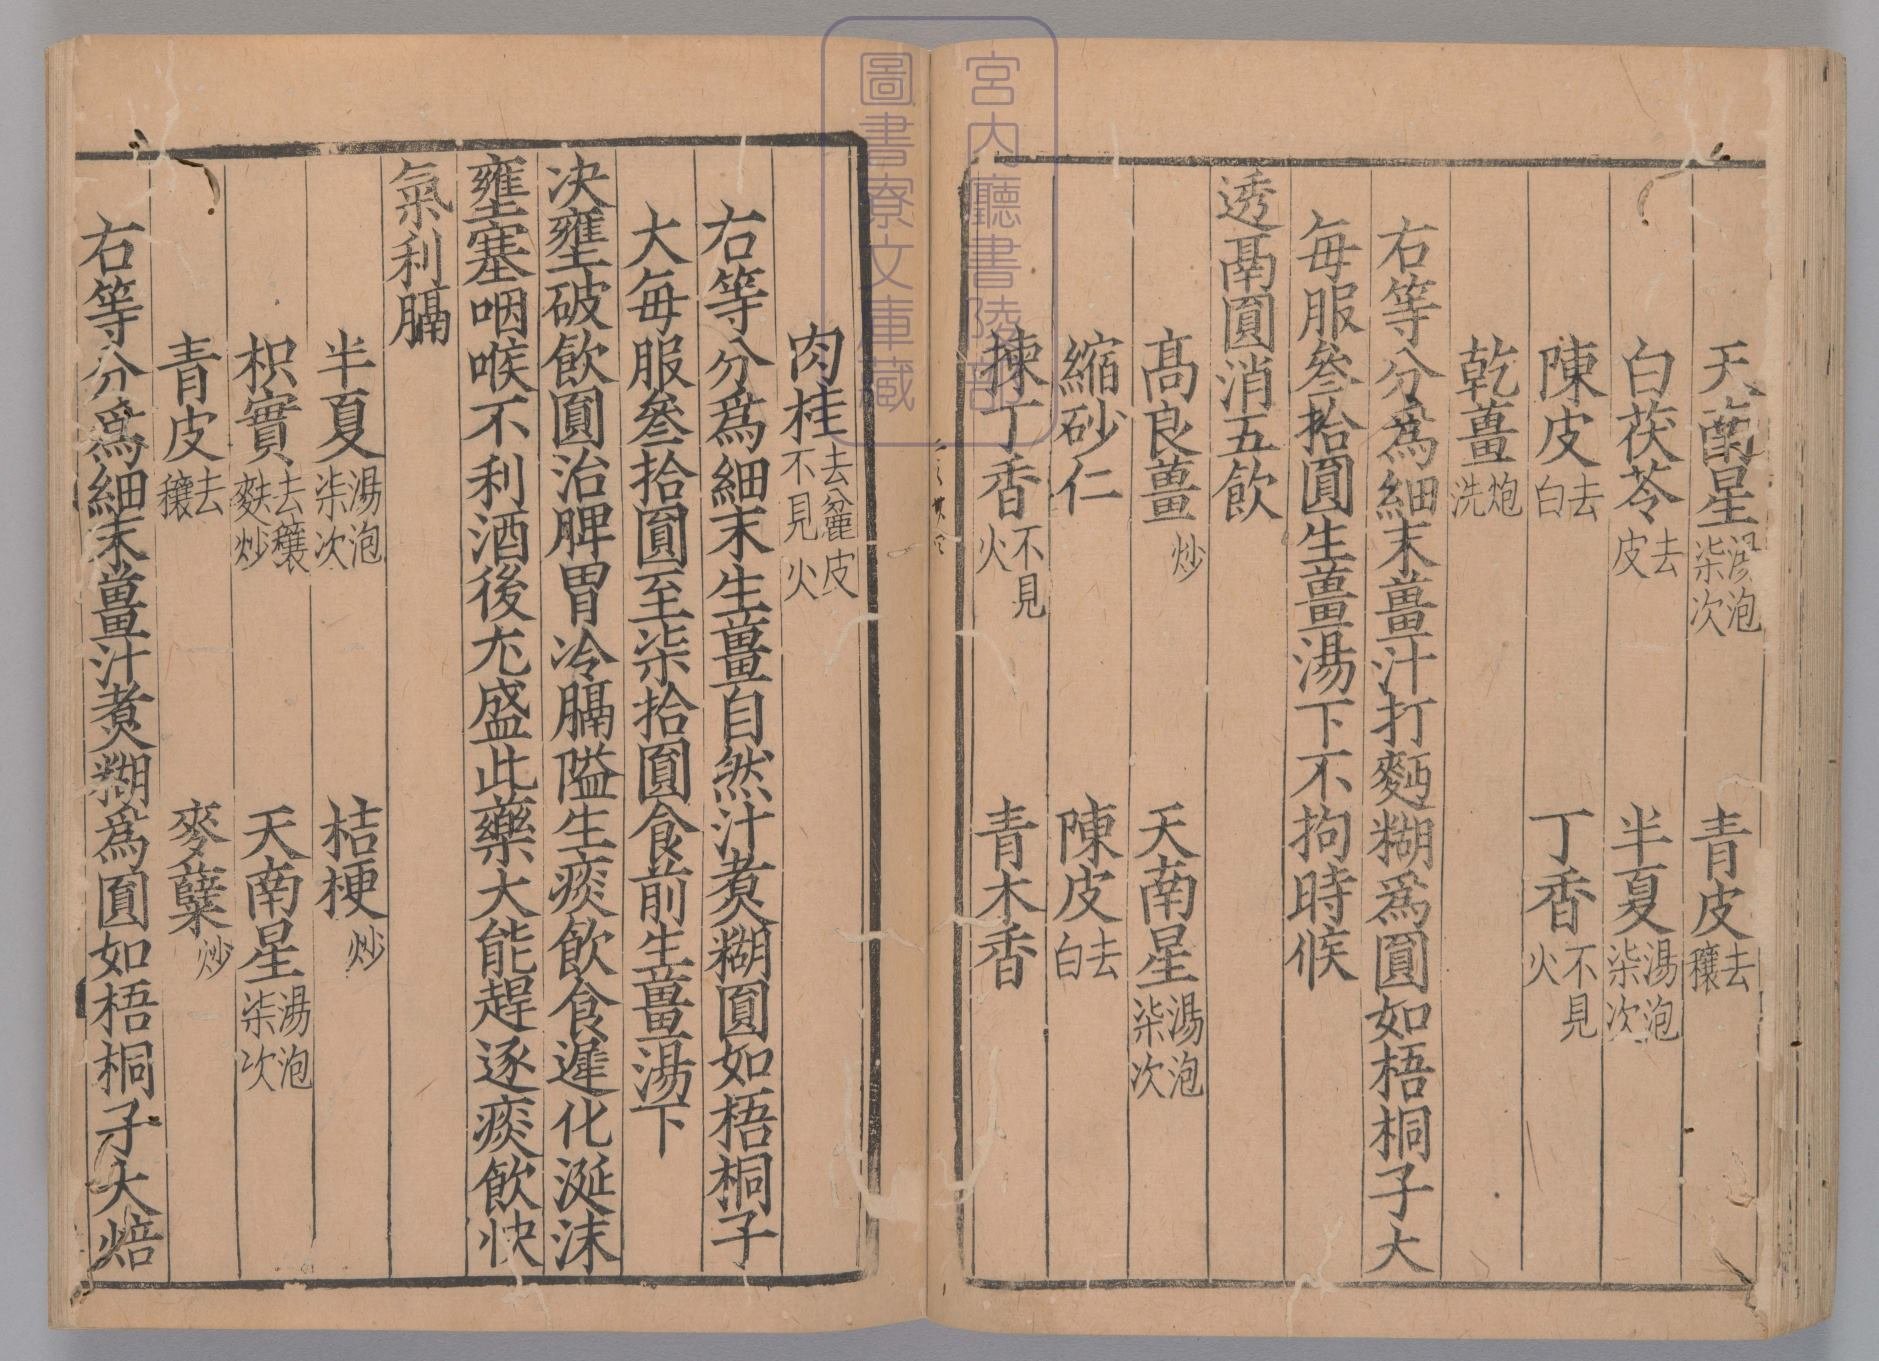 天南星湯泡柒次　青皮去穰
白茯苓去皮　半夏湯泡柒次
陳皮去白　丁香不見火
乾薑炮洗
右等分爲細末薑汁打麪糊爲圓如梧桐子大
每服叄拾圓生薑湯下不拘時候
透鬲圓消五飲
高良薑炒　天南星湯泡柒次
縮砂仁　陳皮去白
揀丁香不見火　青木香
肉桂去麄皮不見火
右等分爲細末生薑自然汁煮糊圓如梧桐子
大每服叄拾圓至柒拾圓食前生薑湯下
决壅破飲圓治脾胃冷膈隘生痰飲食遲化涎沫
壅塞咽喉不利酒後尤盛此藥大能趕逐痰飲快
氣利膈
半夏湯泡柒次　桔梗炒
枳實去穰麩炒　天南星湯泡柒次
青皮去穰　麥櫱炒
右等分爲細末薑汁煮糊爲圓如梧桐子大焙
宮内廳書陵部
圖書寮文庫藏